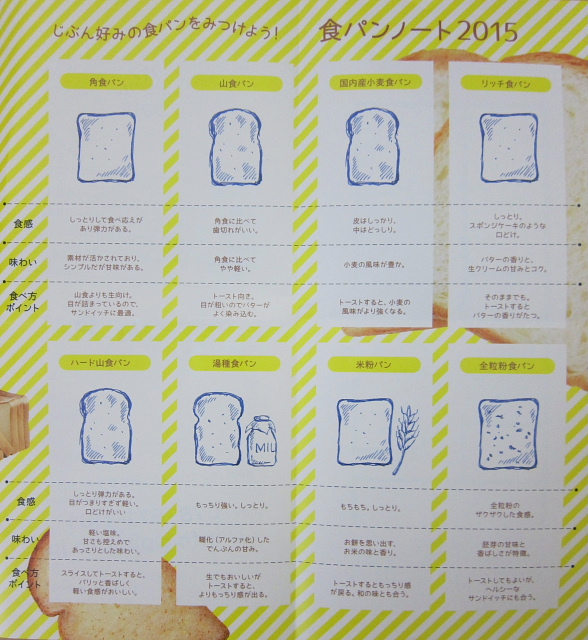 じぶん好みの食パンをみつけよう!
食パンノート2015
角食パン
山食パン
国内産小麦食パン
リッチ食パン
食感
しっとりして食べ応えが
あり弾力がある。
角食に比べて
歯切れがいい。
皮はしっかり、
中はどっしり。
しっとり。
スポンジケーキのような
口どけ。
味わい
素材が活かされており、
シンプルだが甘味がある。
角食に比べて
やや軽い。
小麦の風味が豊か。
バターの香りと、
生クリームの甘みとコク。
食べ方
ポイント
山食よりも生向け。
目が詰まっているので、
サンドイッチに最適。
トースト向き。
目が粗いのでバターが
よく染み込む。
トーストすると、小麦の
風味がより強くなる。
そのままでも。
トーストすると
バターの香りがたつ。
ハード山食パン
湯種食パン
米粉パン
全粒粉食パン
MIL
食感
しっとり弾力がある。
目がつまりすぎず軽い。
口どけがいい
もっちり強い。しっとり。
もちもち。しっとり。
全粒粉の
ザクザクした食感。
味わい
軽い塩味。
甘さも控えめで
あっさりとした味わい。
糊化(アルファ化)した
でんぷんの甘み。
お餅を思い出す、
お米の味と香り。
胚芽の甘味と
香ばしさが特徴。
食べ方
ポイント
スライスしてトーストすると、
パリッと香ばしく
軽い食感がおいしい。
生でもおいしいが
トーストすると、
よりもっちり感が出る。
トーストするともっちり感
が戻る。和の味とも合う。
トーストしてもよいが、
ヘルシーな
サンドイッチにも合う。